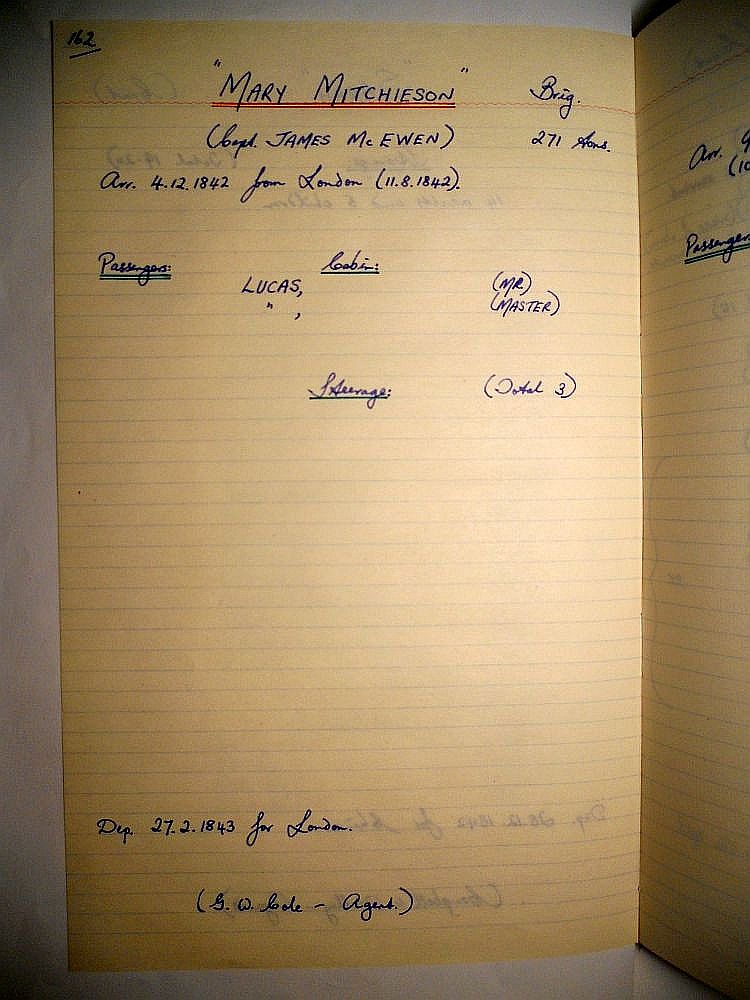 162
"MARY MITCHIESON" Brig.
(Capt. JAMES McEWEN) 271 tons.
Arr. 4.12.1842 from London (11.8.1842).
Passengers: Cabin:
LUCAS, (MR)
" , (MASTER)
Steerage: (Total 3)
Dep. 27.2.1843 for London.
(G. W. Cole - Agent.)
Arr.
Passengers